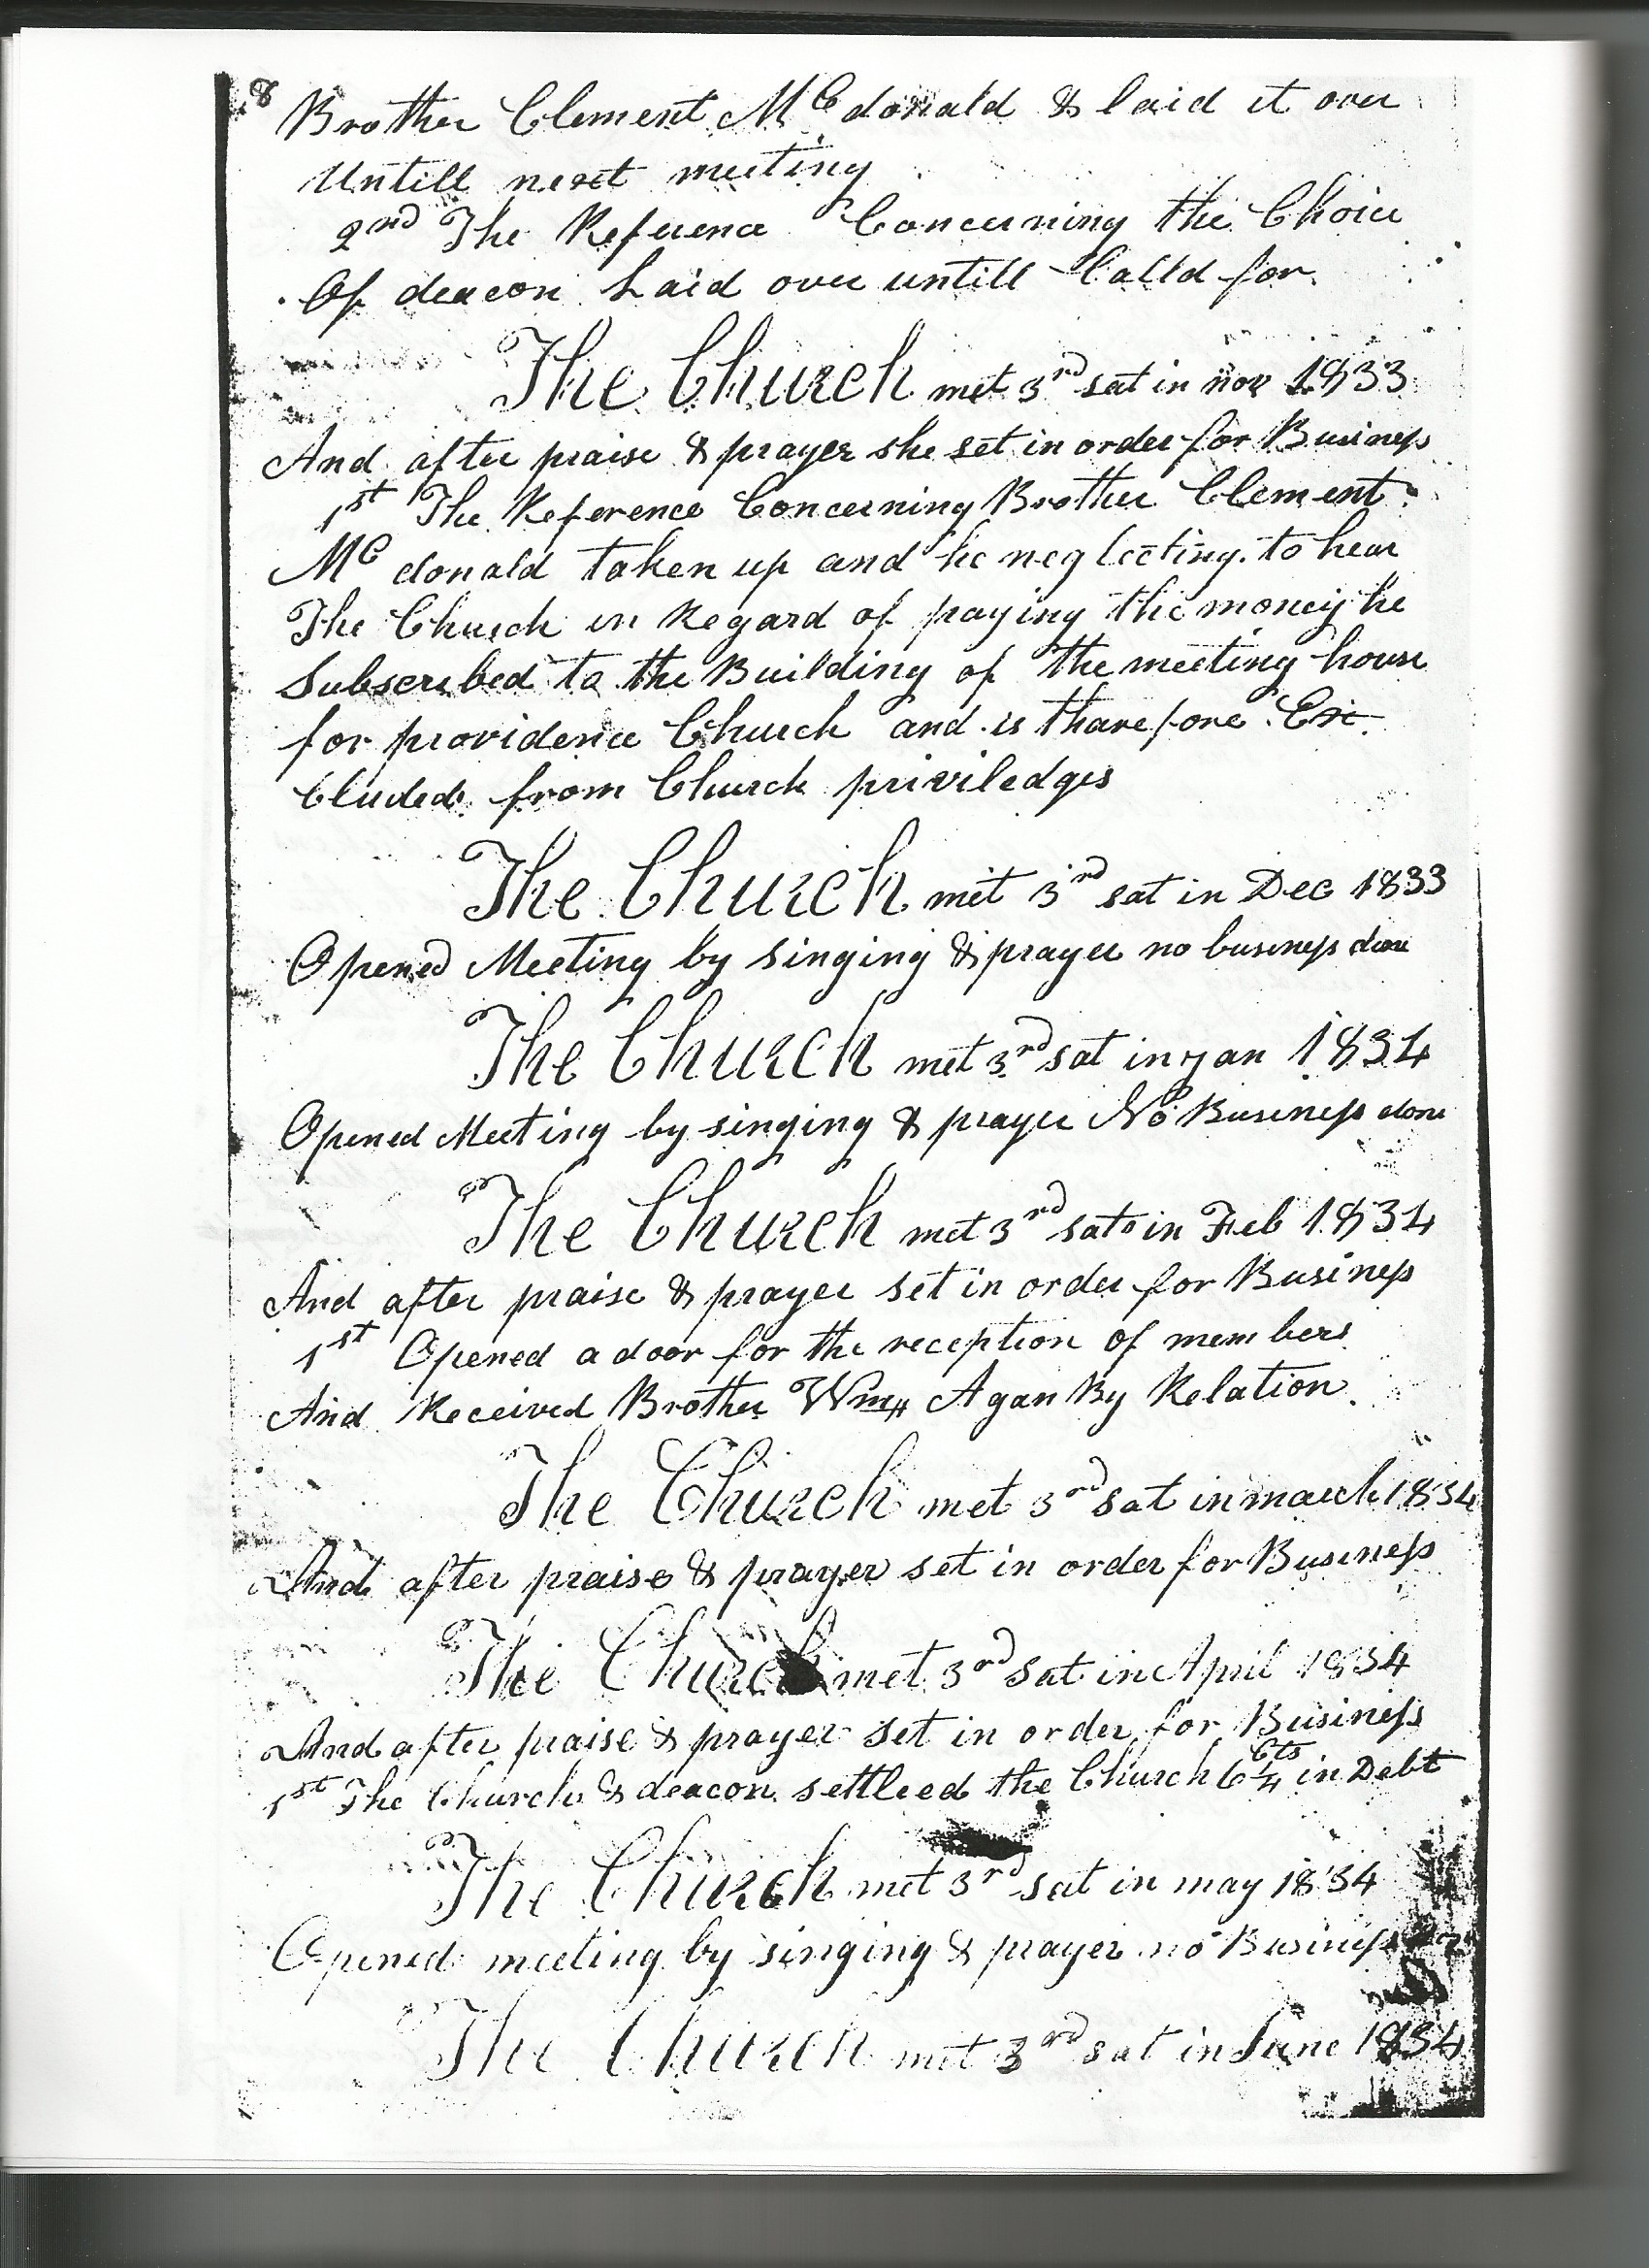 8 Brother Clement Mc donald & laid it over
Untill next meeting
2nd The Referenc Concerning the Choice
Of deacon Laid over untill Calld for
The Church met 3rd sat in nov 1833
And after praise & prayer she set in order for Business
1st The Reference Concerning Brother Clement
Mc donald taken up and he neglecting to hear
The Church in Regard of paying the money he
Subscribed to the Building of the meeting house
for providence Church and is tharefore Ex
Cluded from Church priviledges
The Church met 3rd sat in Dec 1833
Opened Meeting by singing & prayer no business done
The Church met 3rd sat in jan 1834
Opened Meeting by singing & prayer No Business done
The Church met 3rd sat in Feb 1834
And after praise & prayer set in order for Business
1st Opened a door for the reception of members
And Received Brother Wm Agan By Relation
The Church met 3rd sat in march 1834
And after praise & prayer set in order for Business
The Church met 3rd sat in April 1834
And after praise & prayer set in order for Business
1st The Church & deacon settleed the Church 6¼ Cts in Debt
The Church met 3rd sat in may 1834
Opened meeting by singing & prayer no Business
The Church met 3rd sat in June 1834